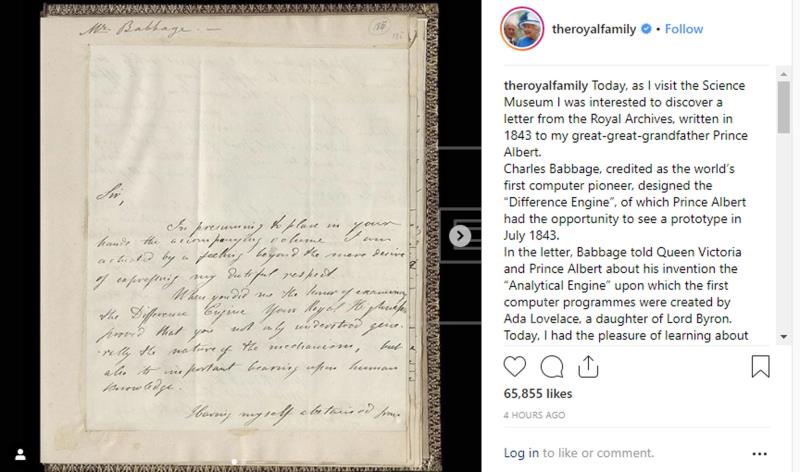 Mr. Babbage. —
Sir,
In presuming to place in your
hands the accompanying volume I am
actuated by a feeling beyond the mere desire
of expressing my dutiful respect.
When you did me the honor of examining
the Difference Engine Your Royal Highness
proved that you not only understood gene-
-rally the nature of the mechanism, but
also its important bearing upon human
knowledge.
Having myself abstained from
theroyalfamily • Follow
theroyalfamily Today, as I visit the Science
Museum I was interested to discover a
letter from the Royal Archives, written in
1843 to my great-great-grandfather Prince
Albert.
Charles Babbage, credited as the world's
first computer pioneer, designed the
“Difference Engine”, of which Prince Albert
had the opportunity to see a prototype in
July 1843.
In the letter, Babbage told Queen Victoria
and Prince Albert about his invention the
“Analytical Engine” upon which the first
computer programmes were created by
Ada Lovelace, a daughter of Lord Byron.
Today, I had the pleasure of learning about
65,855 likes
4 HOURS AGO
Log in to like or comment.